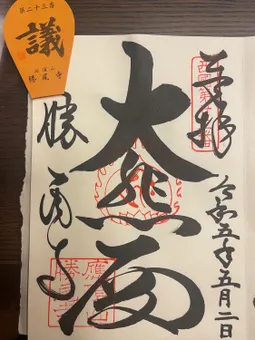 奉拝
令和五年五月二日
大
勝尾寺
應頂山
勝尾寺
第二十三番
議
勝尾寺